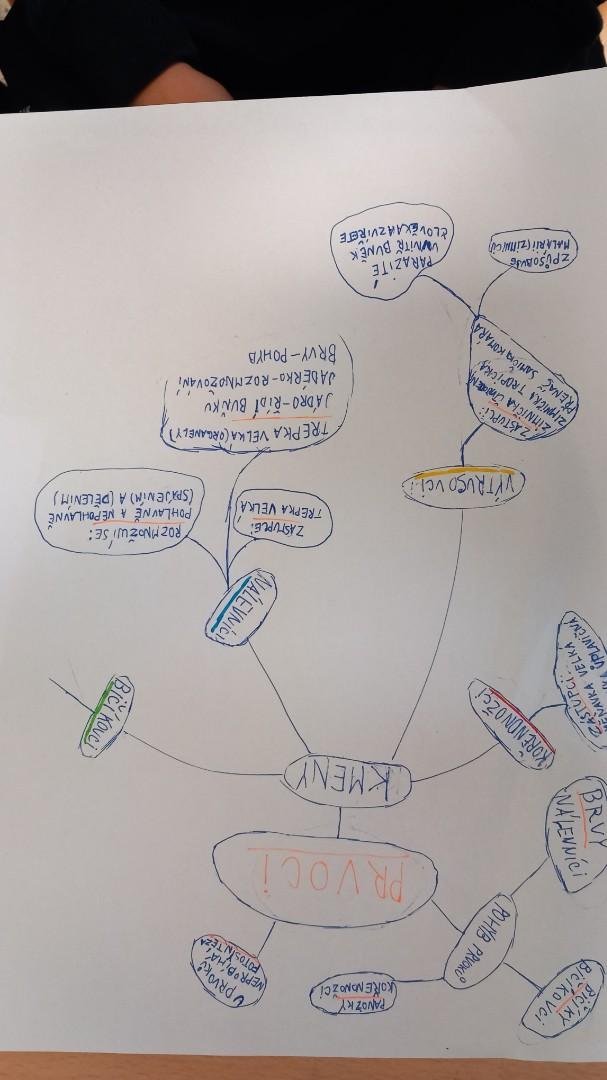 PRVOCI
U PRVOKŮ
NEPROBÍHÁ
FOTOSYNTÉZA
POHYB PRVOKŮ
PANOŽKY
KOŘENONOŽCI
BIČÍKY
BIČÍKOVCI
BRVY
NÁLEVNÍCI
KMENY
BIČÍKOVCI
NÁLEVNÍCI
ROZMNOŽUJÍ SE:
POHLAVNĚ A NEPOHLAVNĚ
(SPAJENÍM) A (DĚLENÍM)
ZÁSTUPCI:
TREPKA VELKÁ
TREPKA VELKÁ (ORGANELY)
JÁDRO-ŘÍDÍ BUŇKU
JADÉRKO-ROZMNOŽOVÁNÍ
BRVY-POHYB
VÝTRUSOVCI
ZÁSTUPCI:
ZIMNIČKA
ZIMNIČKA TROPICKÁ
PŘENAŠ SAMIČKY KOMÁRA
ZPŮSOBUJE
MALÁRII (ZIMNICI)
PARAZITÉ
UVNITŘ BUNĚK
ČLOVĚKA A ZVÍŘETE
KOŘENONOŽCI
ZÁSTUPCI:
MĚŇAVKA VELKÁ
ÚPLAVIČNÁ